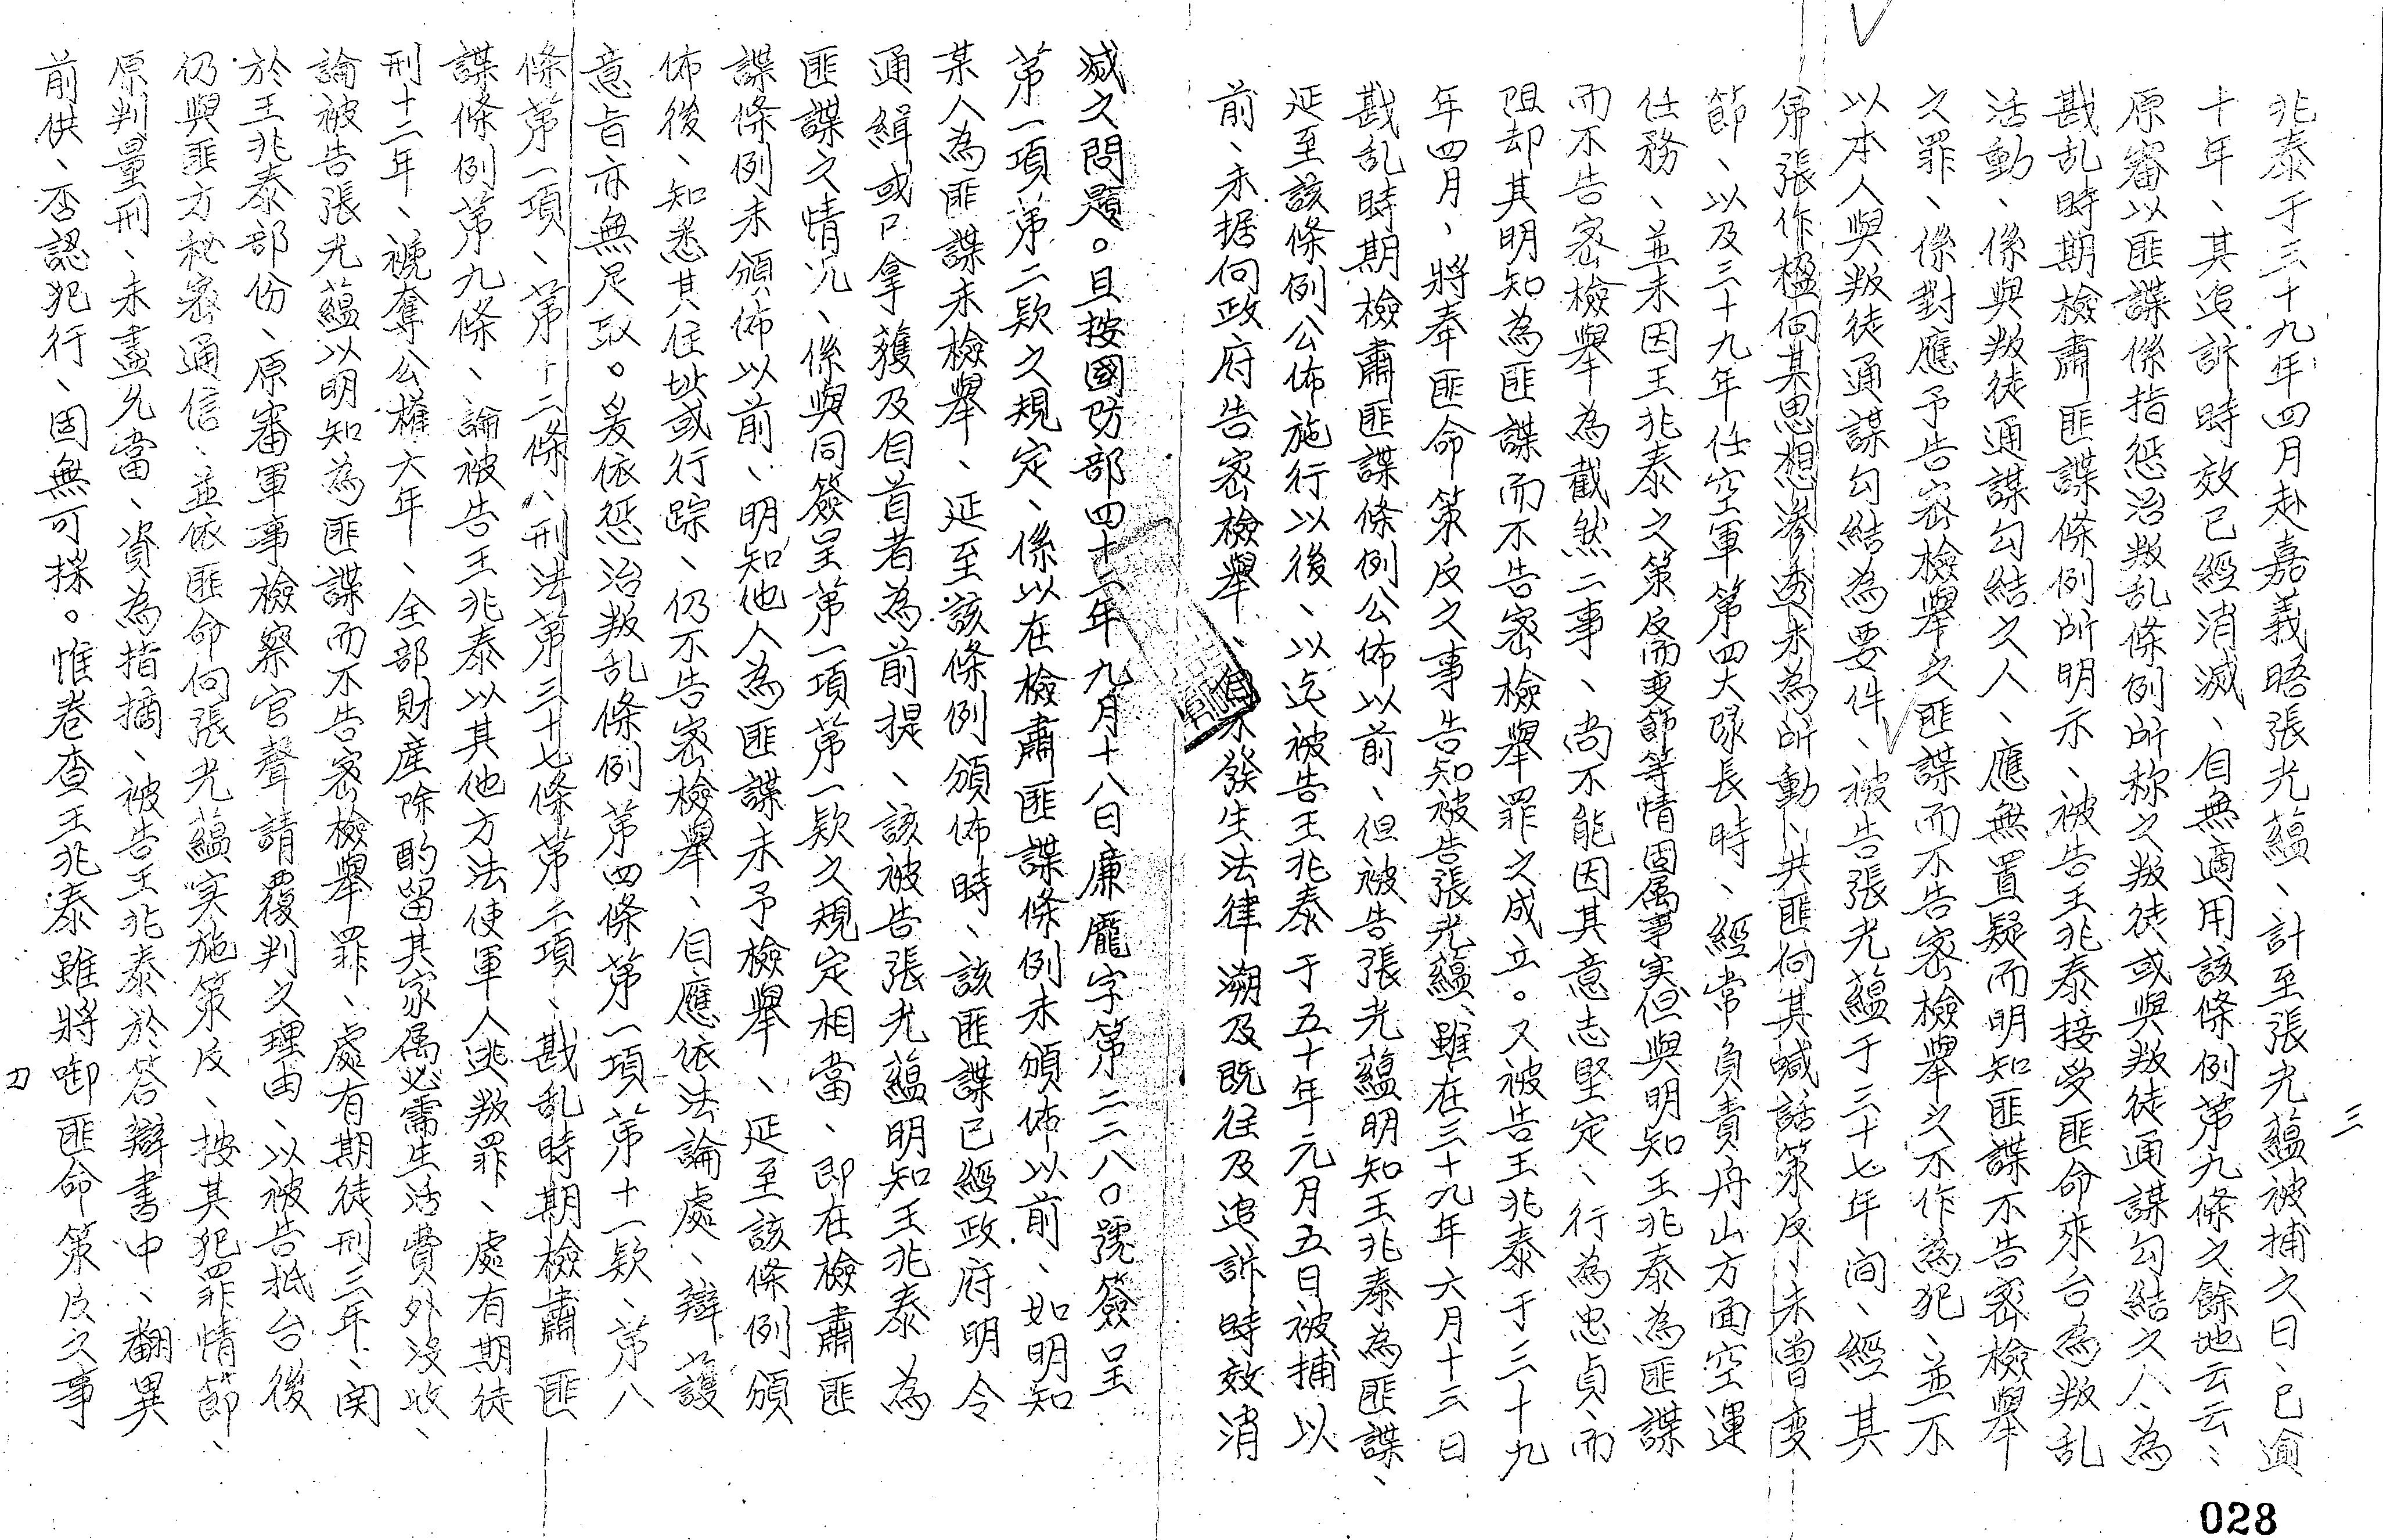 兆泰于三十九年四月赴嘉義晤張光蘊、計至張光蘊被捕之日、已逾
十年、其追訴時效已經消滅、自無適用該條例第九條之餘地云云、
原審以匪諜係指惩治叛乱條例所称之叛徒或與叛徒通謀勾結之人、為
戡乱時期檢肅匪諜條例所明示、被告王兆泰接受匪命來台為叛乱
活動、係與叛徒通謀勾結之人、應無置疑而明知匪諜不告密檢舉
之罪、係對應予告密檢舉之匪諜而不告密檢舉之不作為犯、並不
以本人與叛徒通謀勾結為要件、被告張光蘊于三十七年间、經其
弟張作楹向其思想滲透未為所動、共匪向其喊話策反、未曾变
節、以及三十九年任空軍第四大隊長時、經常負責舟山方面空運
任務、並未因王兆泰之策反而变節等情固属事实但與明知王兆泰為匪諜
而不告密檢舉為截然二事、尚不能因其意志堅定、行為忠貞而
阻却其明知為匪諜而不告密檢舉罪之成立。又被告王兆泰于三十九
年四月、將奉匪命策反之事告知被告張光蘊、雖在三十九年六月十三日
戡乱時期檢肅匪諜條例公佈以前、但被告張光蘊明知王兆泰為匪諜、
延至該條例公佈施行以後、以迄被告王兆泰于五十年元月五日被捕以
前、未据向政府告密檢舉、自不發生法律溯及既往及追訴時效消
滅之問題。且按國防部四十二年九月十八日廉龐字第二二八〇號簽呈
第一項第二款之規定、係以在檢肅匪諜條例未頒佈以前、如明知
某人為匪諜未檢舉、延至該條例頒佈時、該匪諜已經政府明令
通緝或已拿獲及自首者為前提、該被告張光蘊明知王兆泰為
匪諜之情况、係與同簽呈第一項第一款之規定相當、即在檢肅匪
諜條例未頒佈以前、明知他人為匪諜未予檢舉、延至該條例頒
佈後、知悉其住址或行踪、仍不告密檢舉、自應依法論處、辯護
意旨亦無足取。爰依惩治叛乱條例第四條第一項第十一款、第八
條第一項、第十二條、刑法第三十七條第二項、戡乱時期檢肅匪
諜條例第九條、論被告王兆泰以其他方法使軍人逃叛罪、處有期徒
刑十二年、褫奪公權六年、全部財産除酌留其家属必需生活費外沒收、
論被告張光蘊以明知為匪諜而不告密檢舉罪、處有期徒刑三年、関
於王兆泰部份、原審軍事檢察官聲請覆判之理由、以被告抵台後
仍與匪方秘密通信、並依匪命向張光蘊実施策反、按其犯罪情節、
原判量刑、未盡允當、資為指摘、被告王兆泰於答辯書中、翻異
前供、否認犯行、固無可採。惟卷查王兆泰雖將啣匪命策反之事
三
028